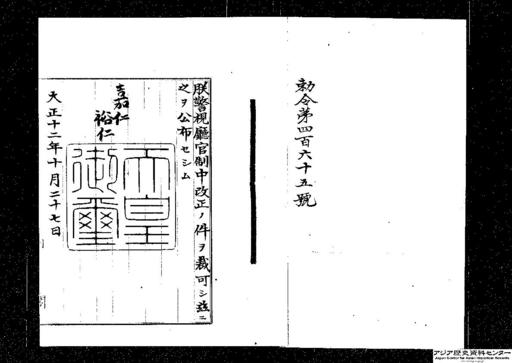 勅令第四百六十五號
朕警視廳官制中改正ノ件ヲ裁可シ茲ニ
之ヲ公布セシム
嘉仁
裕仁
天皇
御璽
大正十二年十月二十七日
アジア歴史資料センター
Japan Center for Asian Historical Records